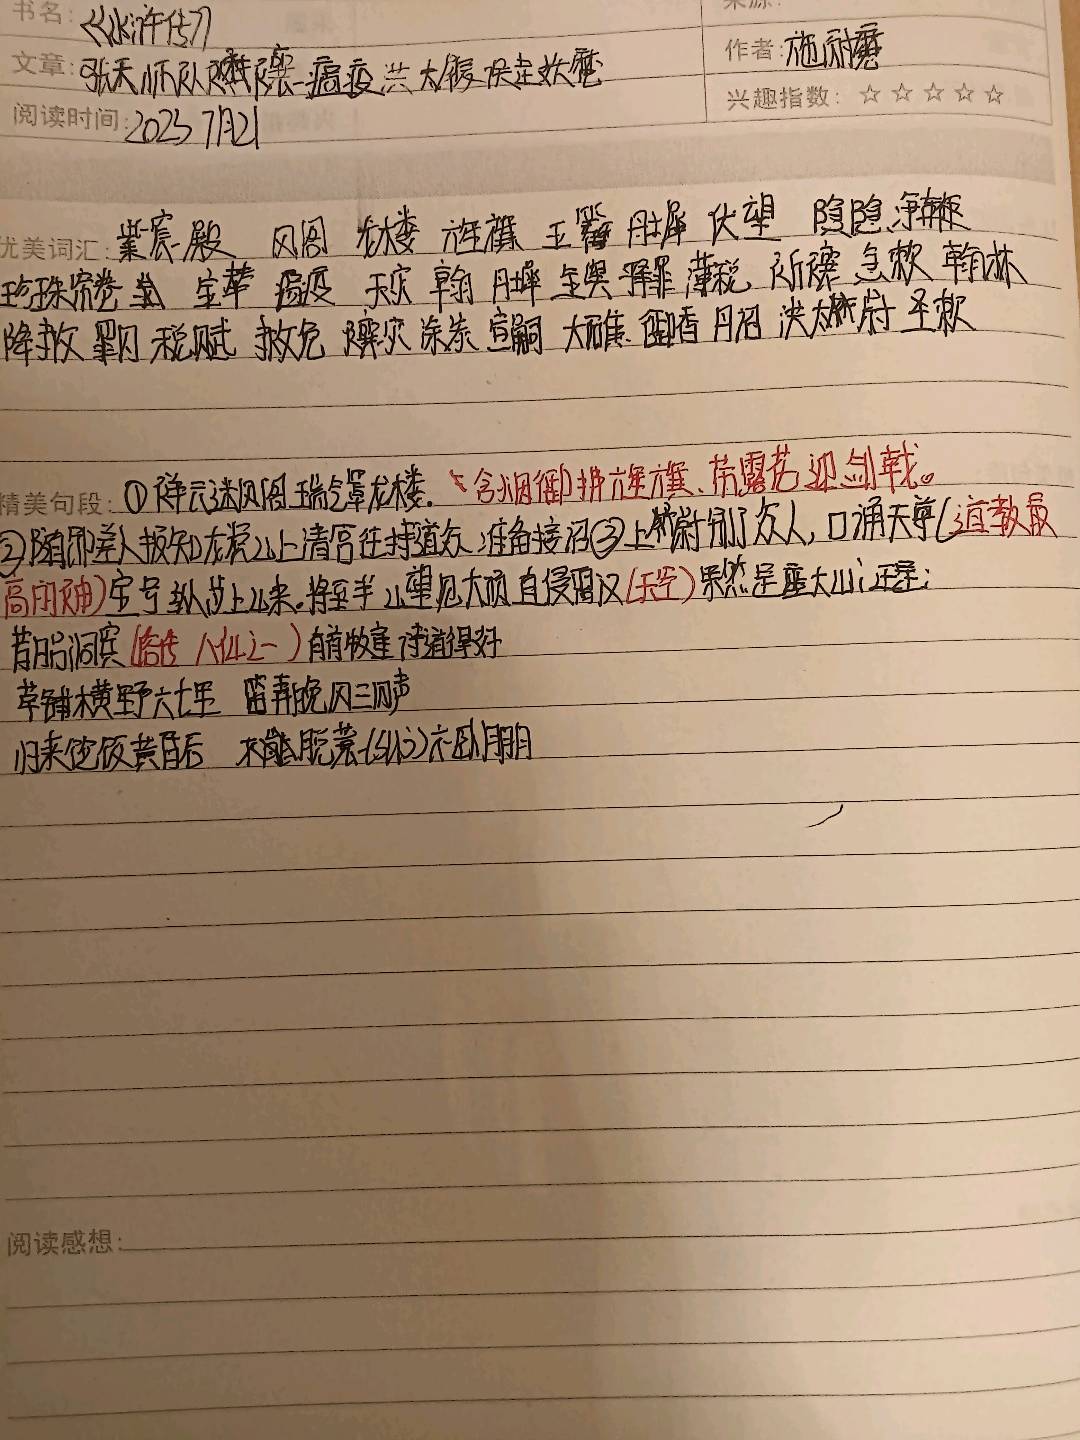 书名:《水浒传》
文章:张天师祈禳瘟疫 洪太尉误走妖魔
作者:施耐庵
兴趣指数:☆☆☆☆☆
阅读时间:2025 7月21
优美词汇:紫宸殿 凤阁 龙楼 旌旗 玉 丹墀 伏望 隐隐净鞭
珍珠帘卷 金 宝辇 瘟疫 天灾 翰 丹墀 释罪 薄税 祈禳 急敕 翰林
降赦 罪 税赋 赦免 禳灾 涂炭 宣嗣 大醮 御香 丹诏 洪太尉 圣敕
精美句段:①祥云迷凤阁 瑞气罩龙楼。含烟御柳拂旌旗、带露花迎剑戟。
②随即差人报知龙虎山上清宫住持道众 准备接诏③上 尉别了众人,口诵天尊(道教最
高 神)宝号 纵步上山来。将至半山望见大顶直侵霄汉(天空)果然是座大山,正是:
昔日吕洞宾( 八仙之一)有首牧童诗道得好
草铺横野六七里 笛弄晚风三四声
归来饱饭黄昏后 不脱蓑(suō)衣卧月明
阅读感想: